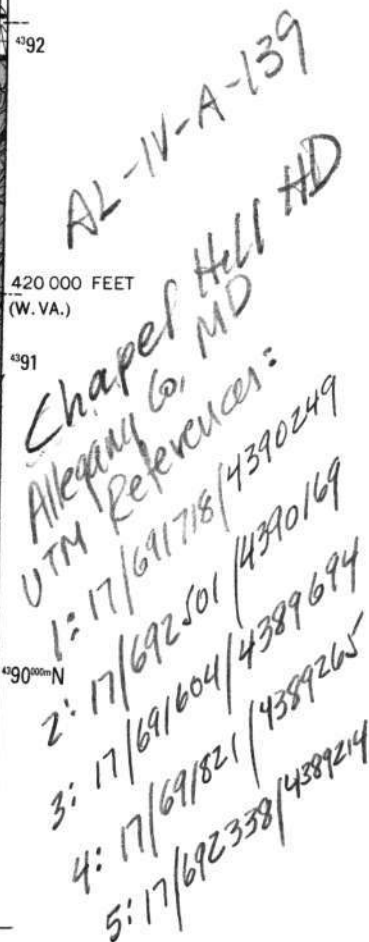 4392
AL-IV-A-139
420 000 FEET
(W. VA.)
4391
Chapel Hill HD
Allegany Co, MD
UTM References:
1: 17/691718/4390249
4390000mN
2: 17/692501/4390169
3: 17/691604/4389694
4: 17/691821/4389265
5: 17/692338/4389214